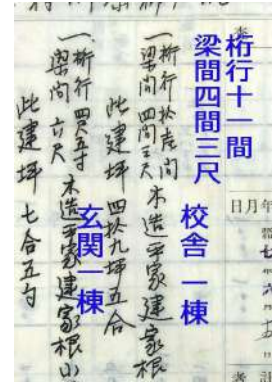 桁行十一間
梁間四間三尺
校舎 一棟
日月年
一桁行拾壱間
梁間四間三尺 木造平家建家根
此建坪 四拾九坪五合
玄関一棟
一桁行四尺五寸
梁間 六尺 木造平家建家根小
此建坪 七合五勺